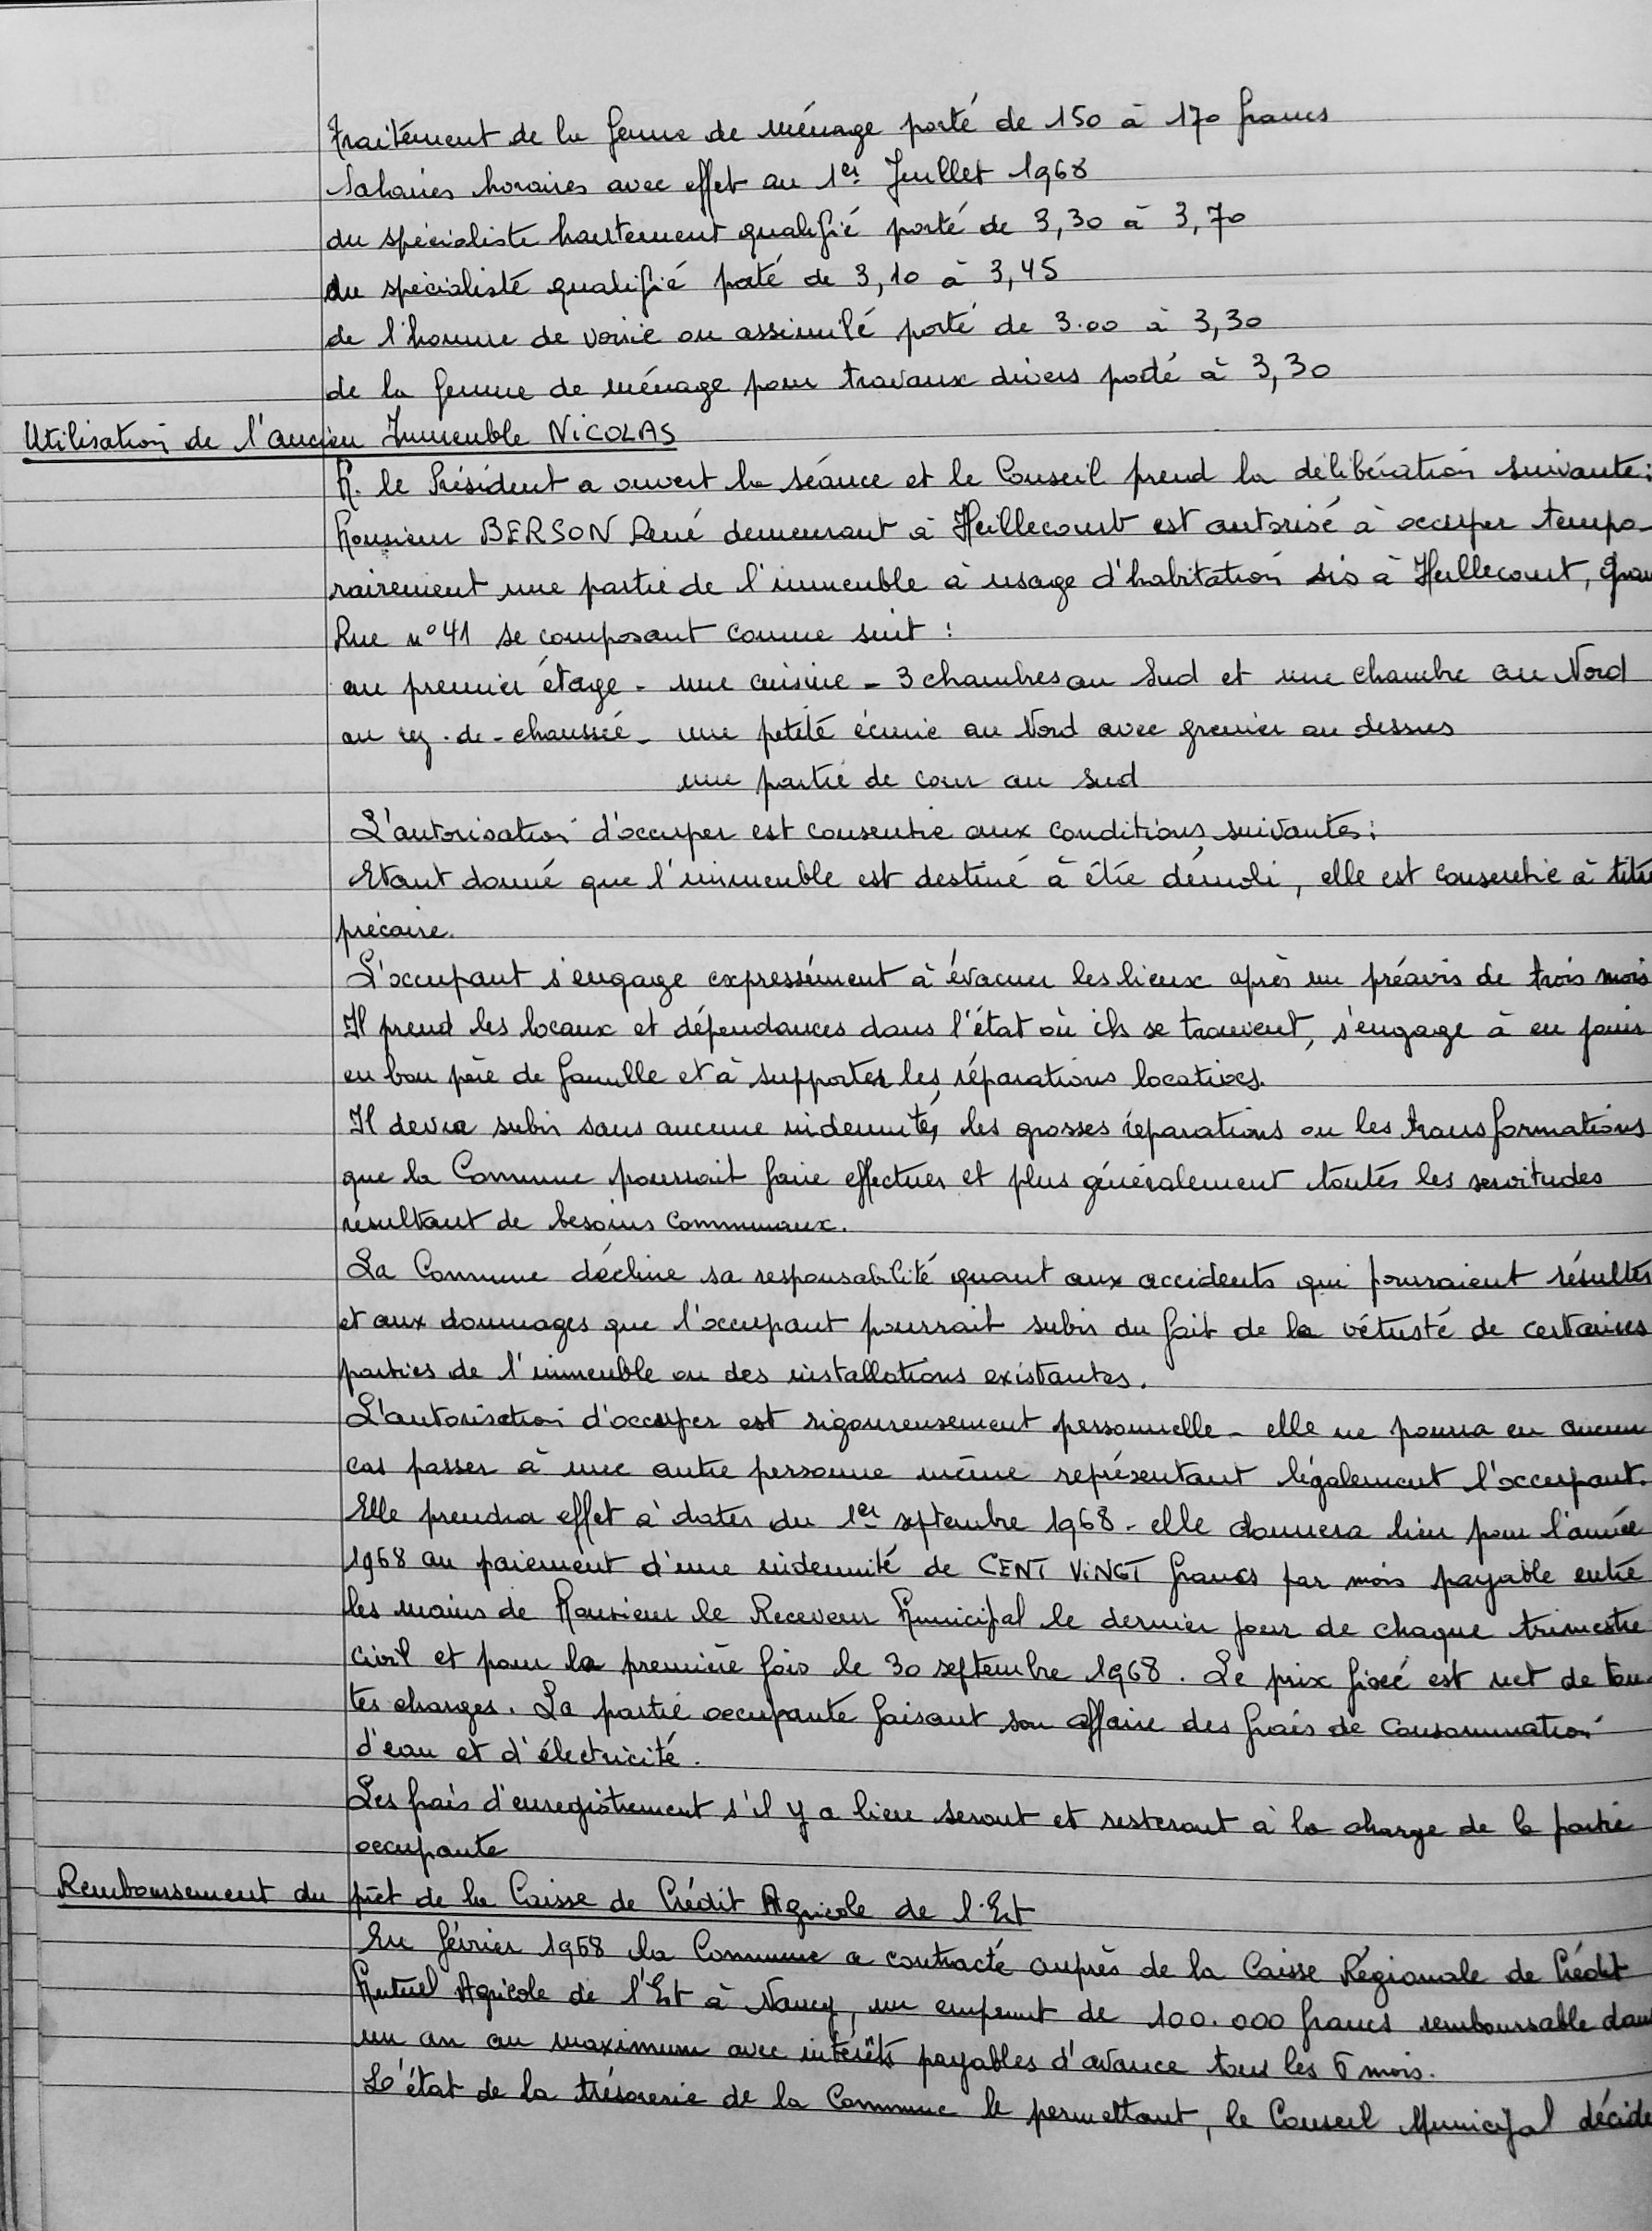 Traitement de la femme de ménage porté de 150 à 170 francs
Salaires horaires avec effet au 1er Juillet 1968
du spécialiste hautement qualifié porté de 3,30 à 3,70
du spécialiste qualifié porté de 3,10 à 3,45
de l'homme de voirie ou assimilé porté de 3.00 à 3,30
de la femme de ménage pour travaux divers porté à 3,30
Utilisation de l'ancien Immeuble NICOLAS
M. le Président a ouvert la séance et le Conseil prend la délibération suivante :
Monsieur BERSON René demeurant à Heillecourt est autorisé à occuper tempo-
rairement une partie de l'immeuble à usage d'habitation sis à Heillecourt, Gran
Rue n° 41 se composant comme suit :
au premier étage - une cuisine - 3 chambres au Sud et une chambre au Nord
au rez-de-chaussée - une petite écurie au Nord avec grenier au dessus
une partie de cour au sud
L'autorisation d'occuper est consentie aux conditions suivantes :
Etant donné que l'immeuble est destiné à être démoli, elle est consentie à titre
précaire.
L'occupant s'engage expressément à évacuer les lieux après un préavis de trois mois
Il prend les locaux et dépendances dans l'état où ils se trouvent, s'engage à en jouir
en bon père de famille et à supporter les réparations locatives.
Il devra subir sans aucune indemnité, les grosses réparations ou les transformations
que la Commune pourrait faire effectuer et plus généralement toutes les servitudes
résultant de besoins communaux.
La Commune décline sa responsabilité quant aux accidents qui pourraient résulter
et aux dommages que l'occupant pourrait subir du fait de la vétusté de certaines
parties de l'immeuble ou des installations existantes.
L'autorisation d'occuper est rigoureusement personnelle - elle ne pourra en aucun
cas passer à une autre personne même représentant légalement l'occupant.
Elle prendra effet à dater du 1er septembre 1968 - elle donnera lieu pour l'année
1968 au paiement d'une indemnité de CENT VINGT francs par mois payable entre
les mains de Monsieur le Receveur Municipal le dernier jour de chaque trimestre
civil et pour la première fois le 30 septembre 1968. Le prix fixé est net de tou-
tes charges. La partie occupante faisant son affaire des frais de consommation
d'eau et d'électricité.
Les frais d'enregistrement s'il y a lieu seront et resteront à la charge de la partie
occupante
Remboursement du prêt de la Caisse de Crédit Agricole de l'Est
En février 1968 la Commune a contracté auprès de la Caisse Régionale de Crédit
Mutuel Agricole de l'Est à Nancy, un emprunt de 100.000 francs remboursable dans
un an au maximum avec intérêts payables d'avance tous les 6 mois.
L'état de la trésorerie de la Commune le permettant, le Conseil Municipal décide